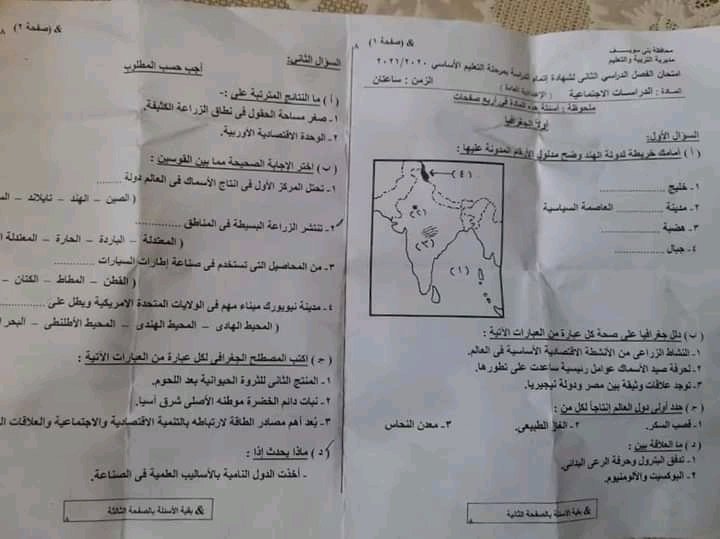 محافظة بنى سويف
مديرية التربية والتعليم
& (صفحة ١) ٨
امتحان الفصل الدراسي الثانى لشهادة إتمام الدراسة بمرحلة التعليم الأساسي ٢٠٢١/٢٠٢٠
(الإعدادية العامة)
المادة : الدراسات الاجتماعية
الزمن : ساعتان
ملحوظة : أسئلة هذه المادة فى أربع صفحات
أولاً: الجغرافيا
السؤال الأول:
( أ ) أمامك خريطة لدولة الهند وضح مدلول الأرقام المدونة عليها :
١- خليج ..........
٢- مدينة .......... العاصمة السياسية
٣- هضبة ..........
٤- جبال ..........
(٤)
(٢)
(٣)
(١)
(ب) دلل جغرافيا على صحة كل عبارة من العبارات الآتية :
١- النشاط الزراعى من الأنشطة الاقتصادية الأساسية فى العالم.
٢- لحرفة صيد الأسماك عوامل رئيسية ساعدت على تطورها.
٣- توجد علاقات وثيقة بين مصر ودولة نيجيريا.
(ج) حدد أولى دول العالم انتاجاً لكل من :
١- قصب السكر. ٢- الغاز الطبيعى. ٣- معدن النحاس
( د ) ما العلاقة بين :
١- تدفق البترول وحرفة الرعى البدائى.
٢- البوكسيت والألومنيوم.
& بقية الأسئلة بالصفحة الثانية ٨
& (صفحة ٢) ٨
السؤال الثانى:
أجب حسب المطلوب
( أ ) ما النتائج المترتبة على :-
١- صغر مساحة الحقول فى نطاق الزراعة الكثيفة.
٢- الوحدة الاقتصادية الأوربية.
(ب) إختر الإجابة الصحيحة مما بين القوسين :
١- تحتل المركز الأول فى انتاج الأسماك فى العالم دولة ......
( الصين – الهند – تايلاند –
٢- تنتشر الزراعة البسيطة فى المناطق ..........
( المعتدلة – الباردة – الحارة – المعتدلة
٣- من المحاصيل التى تستخدم فى صناعة إطارات السيارات ..........
( القطن – المطاط – الكتان –
٤- مدينة نيويورك ميناء مهم فى الولايات المتحدة الامريكية ويطل على ..........
( المحيط الهادى – المحيط الهندى – المحيط الأطلنطى – البحر
(ج) اكتب المصطلح الجغرافى لكل عبارة من العبارات الآتية :
١- المنتج الثانى للثروة الحيوانية بعد اللحوم.
٢- نبات دائم الخضرة موطنه الأصلى شرق أسيا.
٣- يُعد أهم مصادر الطاقة لارتباطه بالتنمية الاقتصادية والاجتماعية والعلاقات
( د ) ماذا يحدث إذا :
- أخذت الدول النامية بالأساليب العلمية فى الصناعة.
& بقية الأسئلة بالصفحة الثالثة ٨